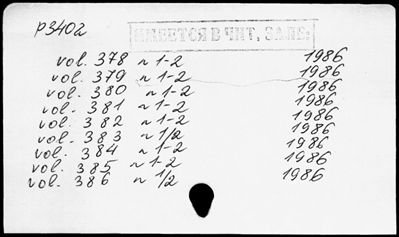 P3402
ИМЕЕТСЯ В ЧИТ. ЗАЛЕ
vol. 378 n 1-2 1986
vol. 379 n 1-2 1986
vol. 380 n 1-2 1986
vol. 381 n 1-2 1986
vol. 382 n 1-2 1986
vol. 383 n 1/2 1986
vol. 384 n 1-2 1986
vol. 385 n 1-2 1986
vol. 386 n 1/2 1986